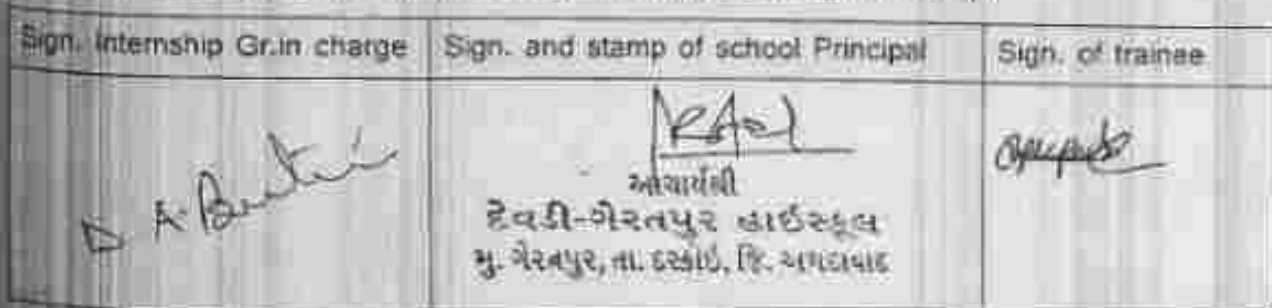 Sign. Internship Gr.in charge
Sign. and stamp of school Principal
Sign. of trainee
આચાર્યશ્રી
દેવડી-ગેરતપુર હાઈસ્કૂલ
મુ. ગેરતપુર, તા. દસ્ક્રોઈ, જિ. અમદાવાદ